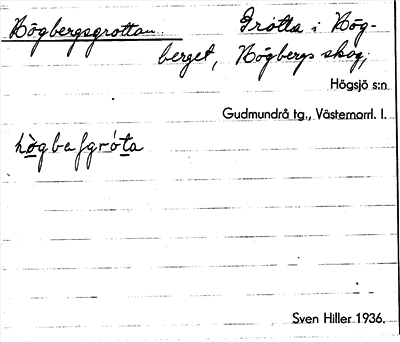 Högbergsgrottan. Grotta i Hög-
berget, Högbergs skog,
Högsjö s:n
Gudmundrå tg., Västernorrl. l.
hògbaʃgróta
Sven Hiller 1936.